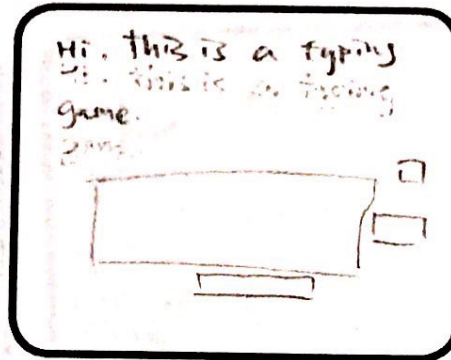 Hi. This is a typing
Hi. This is a typing
game.
game.